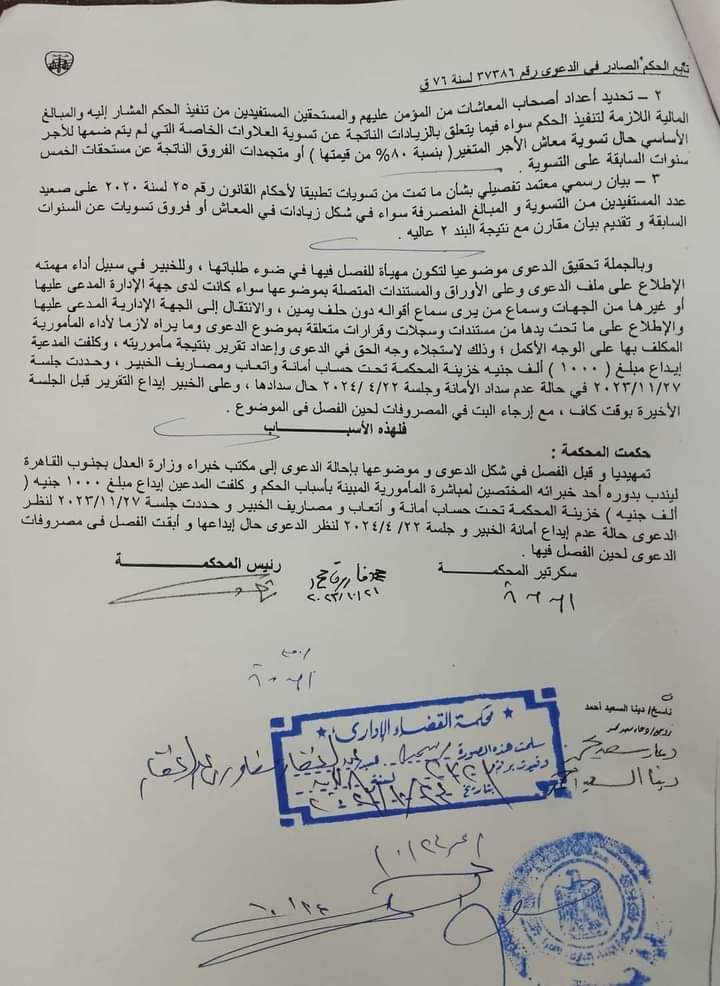 تابع الحكم الصادر فى الدعوى رقم ٣٧٣٨٦ لسنة ٧٦ ق
٢ – تحديد أعداد أصحاب المعاشات من المؤمن عليهم والمستحقين المستفيدين من تنفيذ الحكم المشار إليه والمبالغ
المالية اللازمة لتنفيذ الحكم سواء فيما يتعلق بالزيادات الناتجة عن تسوية العلاوات الخاصة التي لم يتم ضمها للأجر
الأساسي حال تسوية معاش الأجر المتغير( بنسبة ٨٠% من قيمتها ) أو متجمدات الفروق الناتجة عن مستحقات الخمس
سنوات السابقة على التسوية .
٣ – بيان رسمي معتمد تفصيلي بشأن ما تمت من تسويات تطبيقا لأحكام القانون رقم ٢٥ لسنة ٢٠٢٠ على صعيد
عدد المستفيدين من التسوية و المبالغ المنصرفة سواء في شكل زيادات في المعاش أو فروق تسويات عن السنوات
السابقة و تقديم بيان مقارن مع نتيجة البند ٢ عاليه .
وبالجملة تحقيق الدعوى موضوعيا لتكون مهيأة للفصل فيها في ضوء طلباتها ، وللخبير في سبيل أداء مهمته
الإطلاع على ملف الدعوى وعلى الأوراق والمستندات المتصلة بموضوعها سواء كانت لدى جهة الإدارة المدعى عليها
أو غيرها من الجهات وسماع من يرى سماع أقواله دون حلف يمين ، والانتقال إلى الجهة الإدارية المدعى عليها
والإطلاع على ما تحت يدها من مستندات وسجلات وقرارات متعلقة بموضوع الدعوى وما يراه لازما لأداء المأمورية
المكلف بها على الوجه الأكمل ؛ وذلك لاستجلاء وجه الحق في الدعوى وإعداد تقرير بنتيجة مأموريته ، وكلفت المدعية
إيداع مبلغ ( ١٠٠٠ ) ألف جنيه خزينة المحكمة تحت حساب أمانة واتعاب ومصاريف الخبير ، وحددت جلسة
٢٠٢٣/١١/٢٧ في حالة عدم سداد الأمانة وجلسة ٢٠٢٤/ ٤/٢٢ حال سدادها ، وعلى الخبير إيداع التقرير قبل الجلسة
الأخيرة بوقت كاف ، مع إرجاء البت في المصروفات لحين الفصل فى الموضوع .
فلهذه الأسبـــــــاب
حكمت المحكمة :
تمهيديا و قبل الفصل في شكل الدعوى و موضوعها بإحالة الدعوى إلى مكتب خبراء وزارة العدل بجنوب القاهرة
ليندب بدوره أحد خبرائه المختصين لمباشرة المأمورية المبينة بأسباب الحكم و كلفت المدعين إيداع مبلغ ١٠٠٠ جنيه (
ألف جنيه ) خزينة المحكمة تحت حساب أمانة و أتعاب و مصاريف الخبير و حددت جلسة ٢٠٢٣/١١/٢٧ لنظر
الدعوى حالة عدم إيداع أمانة الخبير و جلسة ٢٢/ ٢٠٢٤/٤ لنظر الدعوى حال إيداعها و أبقت الفصل فى مصروفات
الدعوى لحين الفصل فيها .
سكرتير المحكمـــــــة
رئيس المحكمـــــــة
ناسخ/ دينا السعيد أحمد
محكمة القضاء الإدارى
سلمت هذه الصورة
بتاريخ